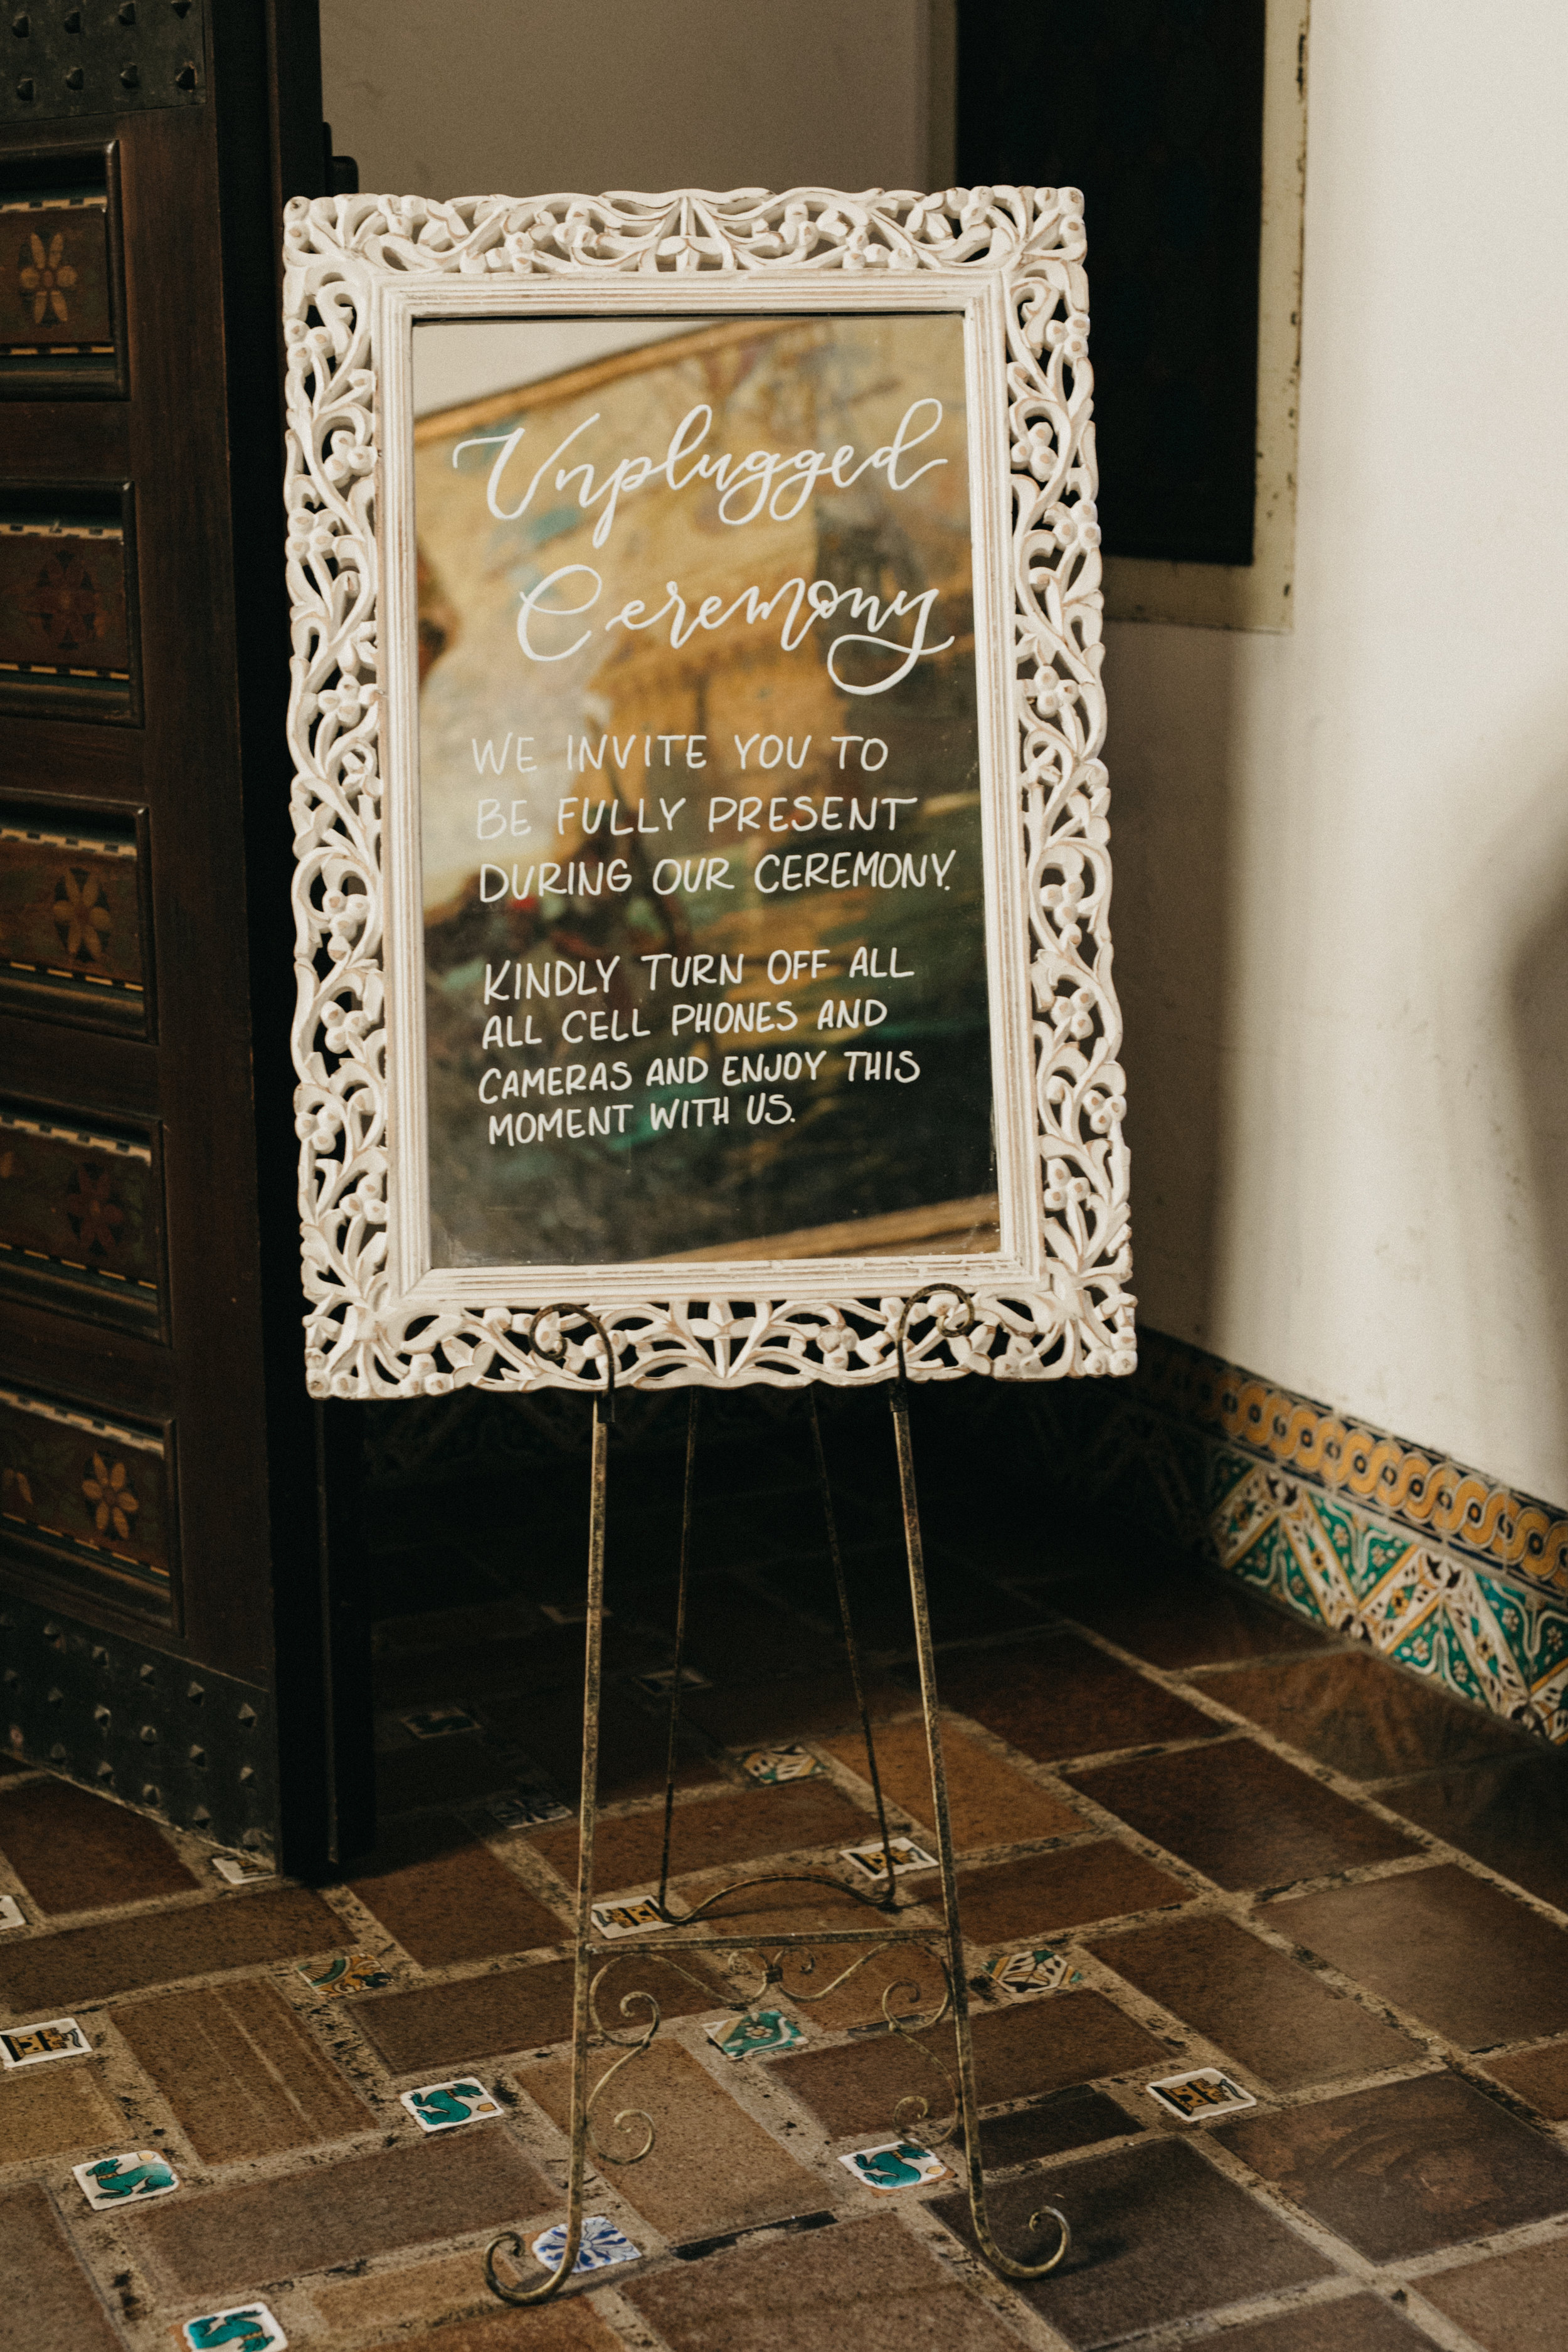 Unplugged
Ceremony
WE INVITE YOU TO
BE FULLY PRESENT
DURING OUR CEREMONY.
KINDLY TURN OFF ALL
ALL CELL PHONES AND
CAMERAS AND ENJOY THIS
MOMENT WITH US.